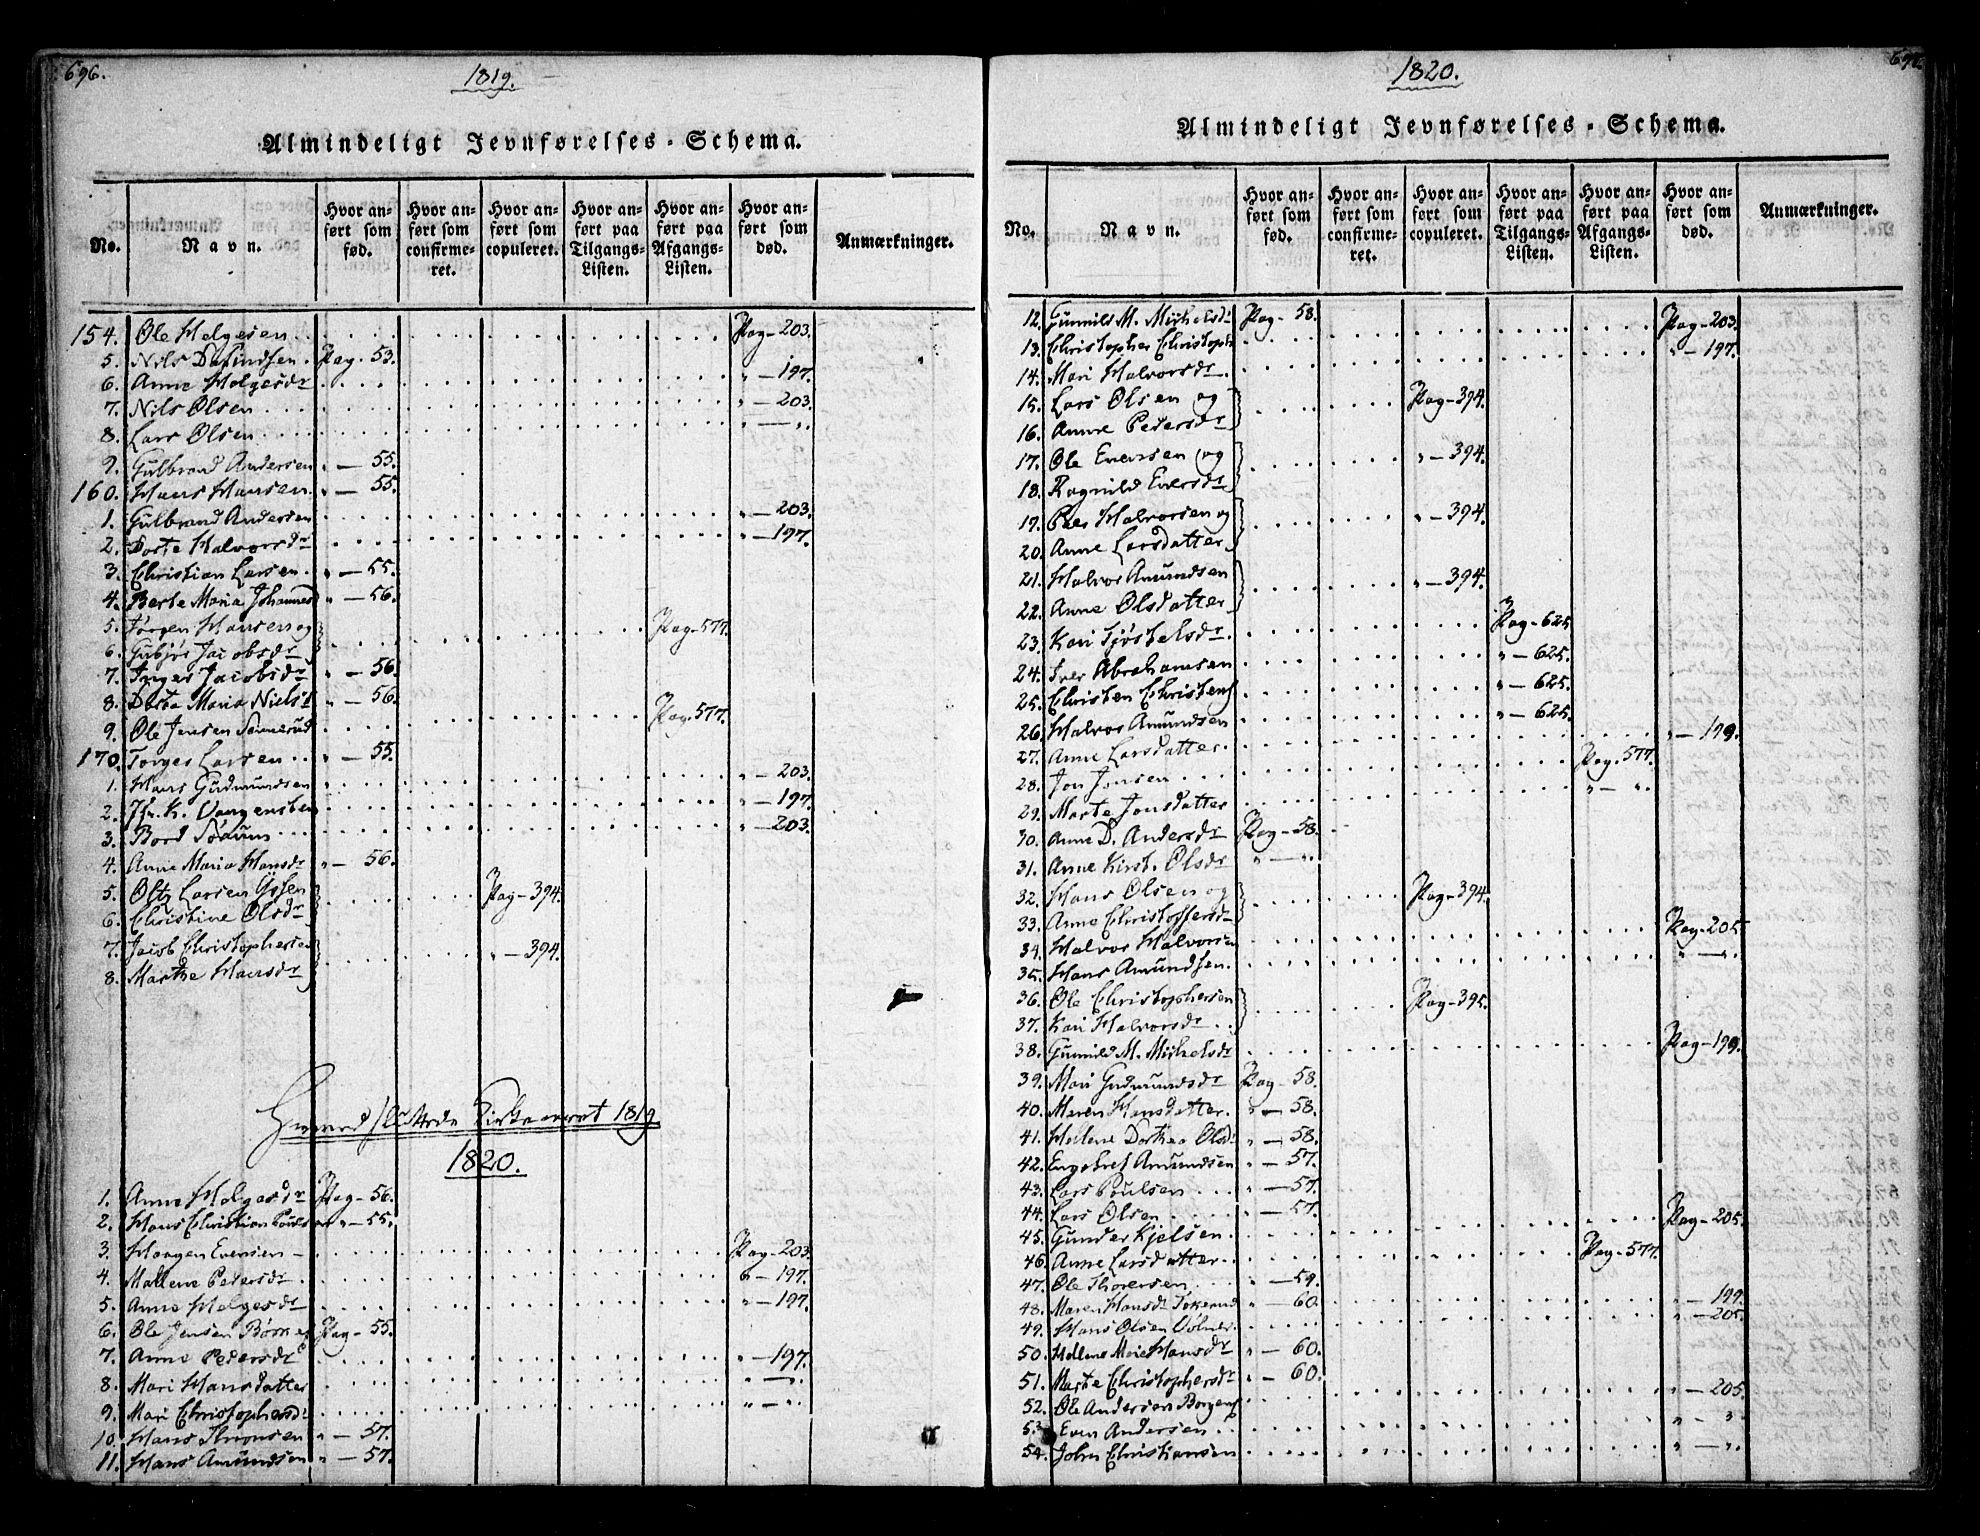 696.
1819.
Almindeligt Jevnførelses-Schema.
No. Navn. Hvor anført som fød. Hvor anført som confirmeret. Hvor anført som copuleret. Hvor anført paa Tilgangs-Listen. Hvor anført paa Afgangs-Listen. Hvor anført som død. Anmærkninger.
154. Ole Helgesen Pag-203.
5. Nils Pag-53.
6. Anne Helgesdr " -197.
7. Nils Olsen " -203.
8. Lars Olsen " — ".
9. Gulbrand Andersen " -55.
160. Hans Hansen " -55.
1. Gulbrand Andersen " -203.
2. Dorte Halvorsdr " -197.
3. Christian Larsen " -55.
4. Berte Maria Johannesd " -56.
5. Jørgen Hansen og Pag-577.
6. Gubjør Jacobsdr
7. Inger Jacobsdr " -56.
8. Dorte Maria Nielsd " -56.
9. Ole Jensen Pag-577.
170. Torger Larsen " -55.
1. Hans Gudmundsen " -203.
2. K. Vangensten " -197.
3. Bord " -203.
4. Anne Maria Hansdr " -56.
5. Larsen Pag-394.
6. Christine Olsdr
7. Jacob Christophersen " -394.
8. Marthe Hansdr
1819
1820.
1. Anne Helgesdr Pag-56.
2. Hans Christian " -55.
3. Haagen Evensen Pag-203.
4. Mallene Pedersdr -197.
5. Anne Helgesdr " -197.
6. Ole Jensen Pag-55.
7. Anne Pedersdr " -197.
8. Mari Hansdatter " — ".
9. Mari Christophersdr " — ".
10. Hans " -57.
11. Hans Amundsen " -57.
1820.
Almindeligt Jevnførelses-Schema.
No. Navn. Hvor anført som fød. Hvor anført som confirmeret. Hvor anført som copuleret. Hvor anført paa Tilgangs-Listen. Hvor anført paa Afgangs-Listen. Hvor anført som død. Anmærkninger.
12. Gunnild M. Michelsdr Pag-58.
13. Christopher Christoph Pag-203.
14. Mari Halvorsdr. " -197.
15. Lars Olsen og Pag-394.
16. Anne Pedersdr
17. Ole Evensen og " -394.
18. Ragnild Eversdr
19. Peer Halvorsen og " -394.
20. Anne Larsdatter
21. Halvor Amundsen " -394.
22. Anne Olsdatter
23. Kari Pag-625
24. Iver Abrahamsen " -625.
25. Christen Christens " -625.
26. Halvor Amundsen " -625.
27. Anne Larsdatter. " -199.
28. Jon Jonsen Pag-577.
29. Marte Jonsdatter " — ".
30. Anne D. Andersdr Pag-58.
31. Anne Kirst. Olsdr " — ".
32. Hans Olsen og Pag-394.
33. Anne Christoffersdr
34. Halvor Halvorsen Pag-205.
35. Hans Amundsen. " — ".
36. Ole Christophersen Pag-395.
37. Kari Halvorsdr
38. Gunnild M. Michelsdr Pag-199.
39. Mari Gudmundsdr Pag-58.
40. Maren Hansdatter. " -58.
41. Hellene Dorthea Olsdr " -58.
42. Engebret Amundsen " -57.
43. Lars Poulsen " -57.
44. Lars Olsen " -57.
45. Gunder Kjelsen Pag-205.
46. Anne Larsdatter Pag-577.
47. Ole Thoresen " -59.
48. Maren Hansdr " -60.
49. Hans Olsen Volner " -199.
50. Hellene Marie Hansdr " -60. " -205.
51. Marte Christophersdr " -60.
52. Ole Andersen " -205.
53. Even Andersen " — ".
54. John Christiansen " — ".